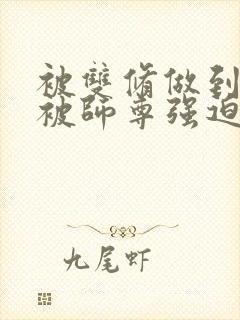 被雙脩做到
被師尊强迫
九尾虾